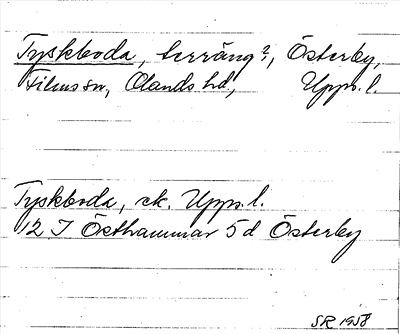 Tyskboda, terräng?, Österby,
Films sn, Olands hd, Upps. l.
Tyskboda, ek. Upps. l.
12 I Östhammar 5d Österby
SR 1958